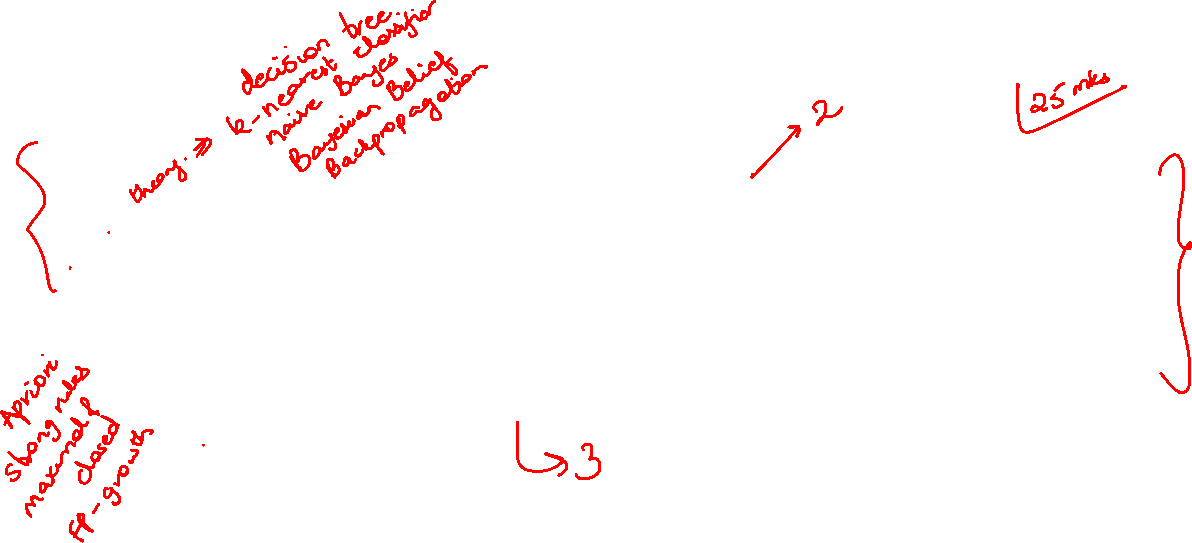 theory. ⇒ decision tree
k-nearest classifier
naive Bayes
Bayesian Belief
Backpropagation
→ 2
25 mks
Apriori
strong rules
maximal &
closed
FP-growth
↳ 3